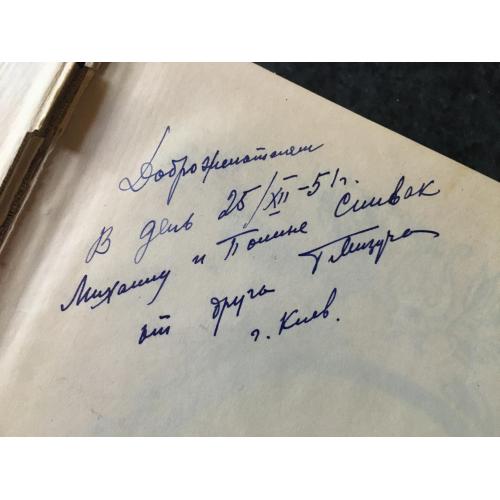 Доброжелателям
В день 25/XII-51г.
Михаилу и Полине Спивак
от друга
г. Киев.